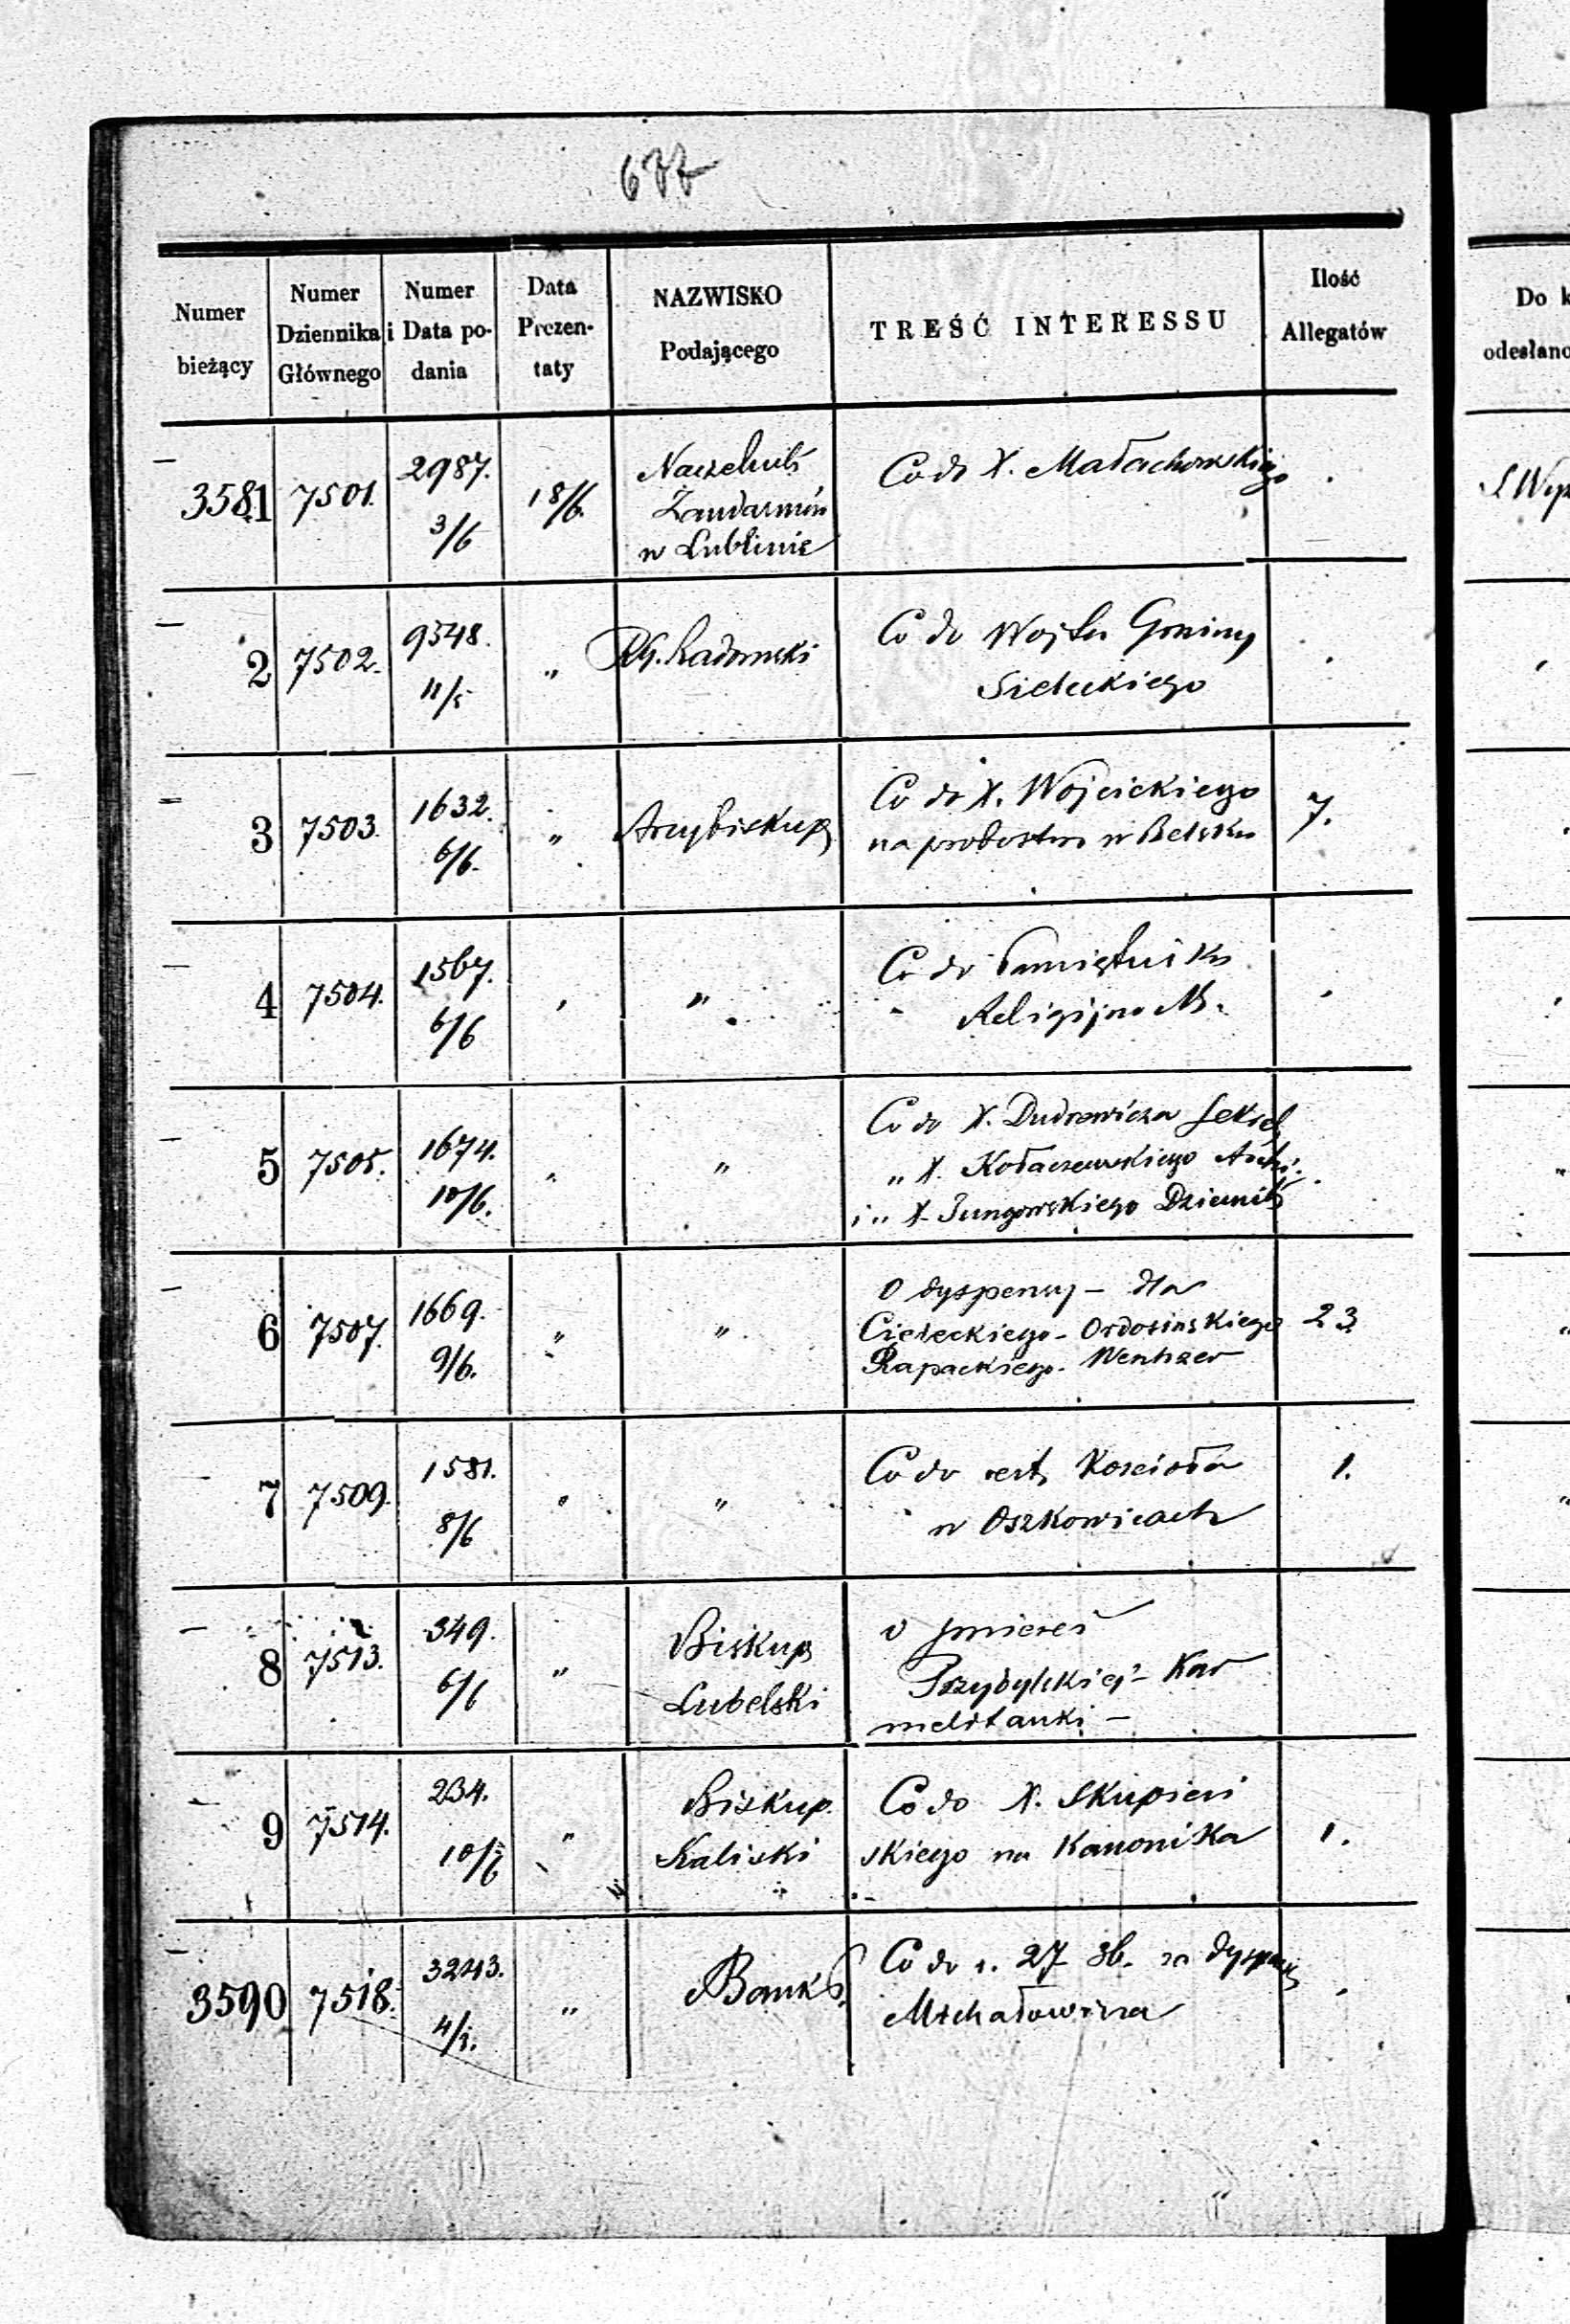 Numer bieżący
Numer Dziennika Głównego
Numer i Data podania
Data Prezentaty
NAZWISKO Podającego
TREŚĆ INTERESSU
Ilość Allegatów
Do k
odesłano
3581 7501. 2987. 3/6 18/6. Naczelnik Co do X. Małachowskiego
Żandarmów
w Lublinie
2 7502. 9548. 11/5 " RG. Radomski Co do Wojta Gminy
Sieluckiego
3 7503. 1632. 6/6. " Arcybiskup Co do X. Wojcickiego 7.
na probostwo w Belsku
4 7504. 1567. 6/6 " " Co do Pamiętnika
Religijno M.
5 7505. 1674. 10/6. " " Co do X. Dudrewicza Sekret.
" X. Kołaczewskiego Archi.
i " X. Jungowskiego Dziennik
6 7507. 1669. 9/6. " " O dyspensy – dla 23
Cieleckiego – Ordosinskiego
Rapackiego –
7 7509. 1581. 8/6 " " Co do rest. Kościoła 1.
w Oszkowicach
8 7513. 349. 6/6 " Biskup o śmierci
Lubelski Przybylskiej – Kar
melitanki –
9 7514. 234. 10/6 " Biskup Co do X. Skupień 1.
Kaliski skiego na Kanonika
3590 7518. 3243. " Bank P. Co do r. 27 sb. za dyspensę
Michałowicza